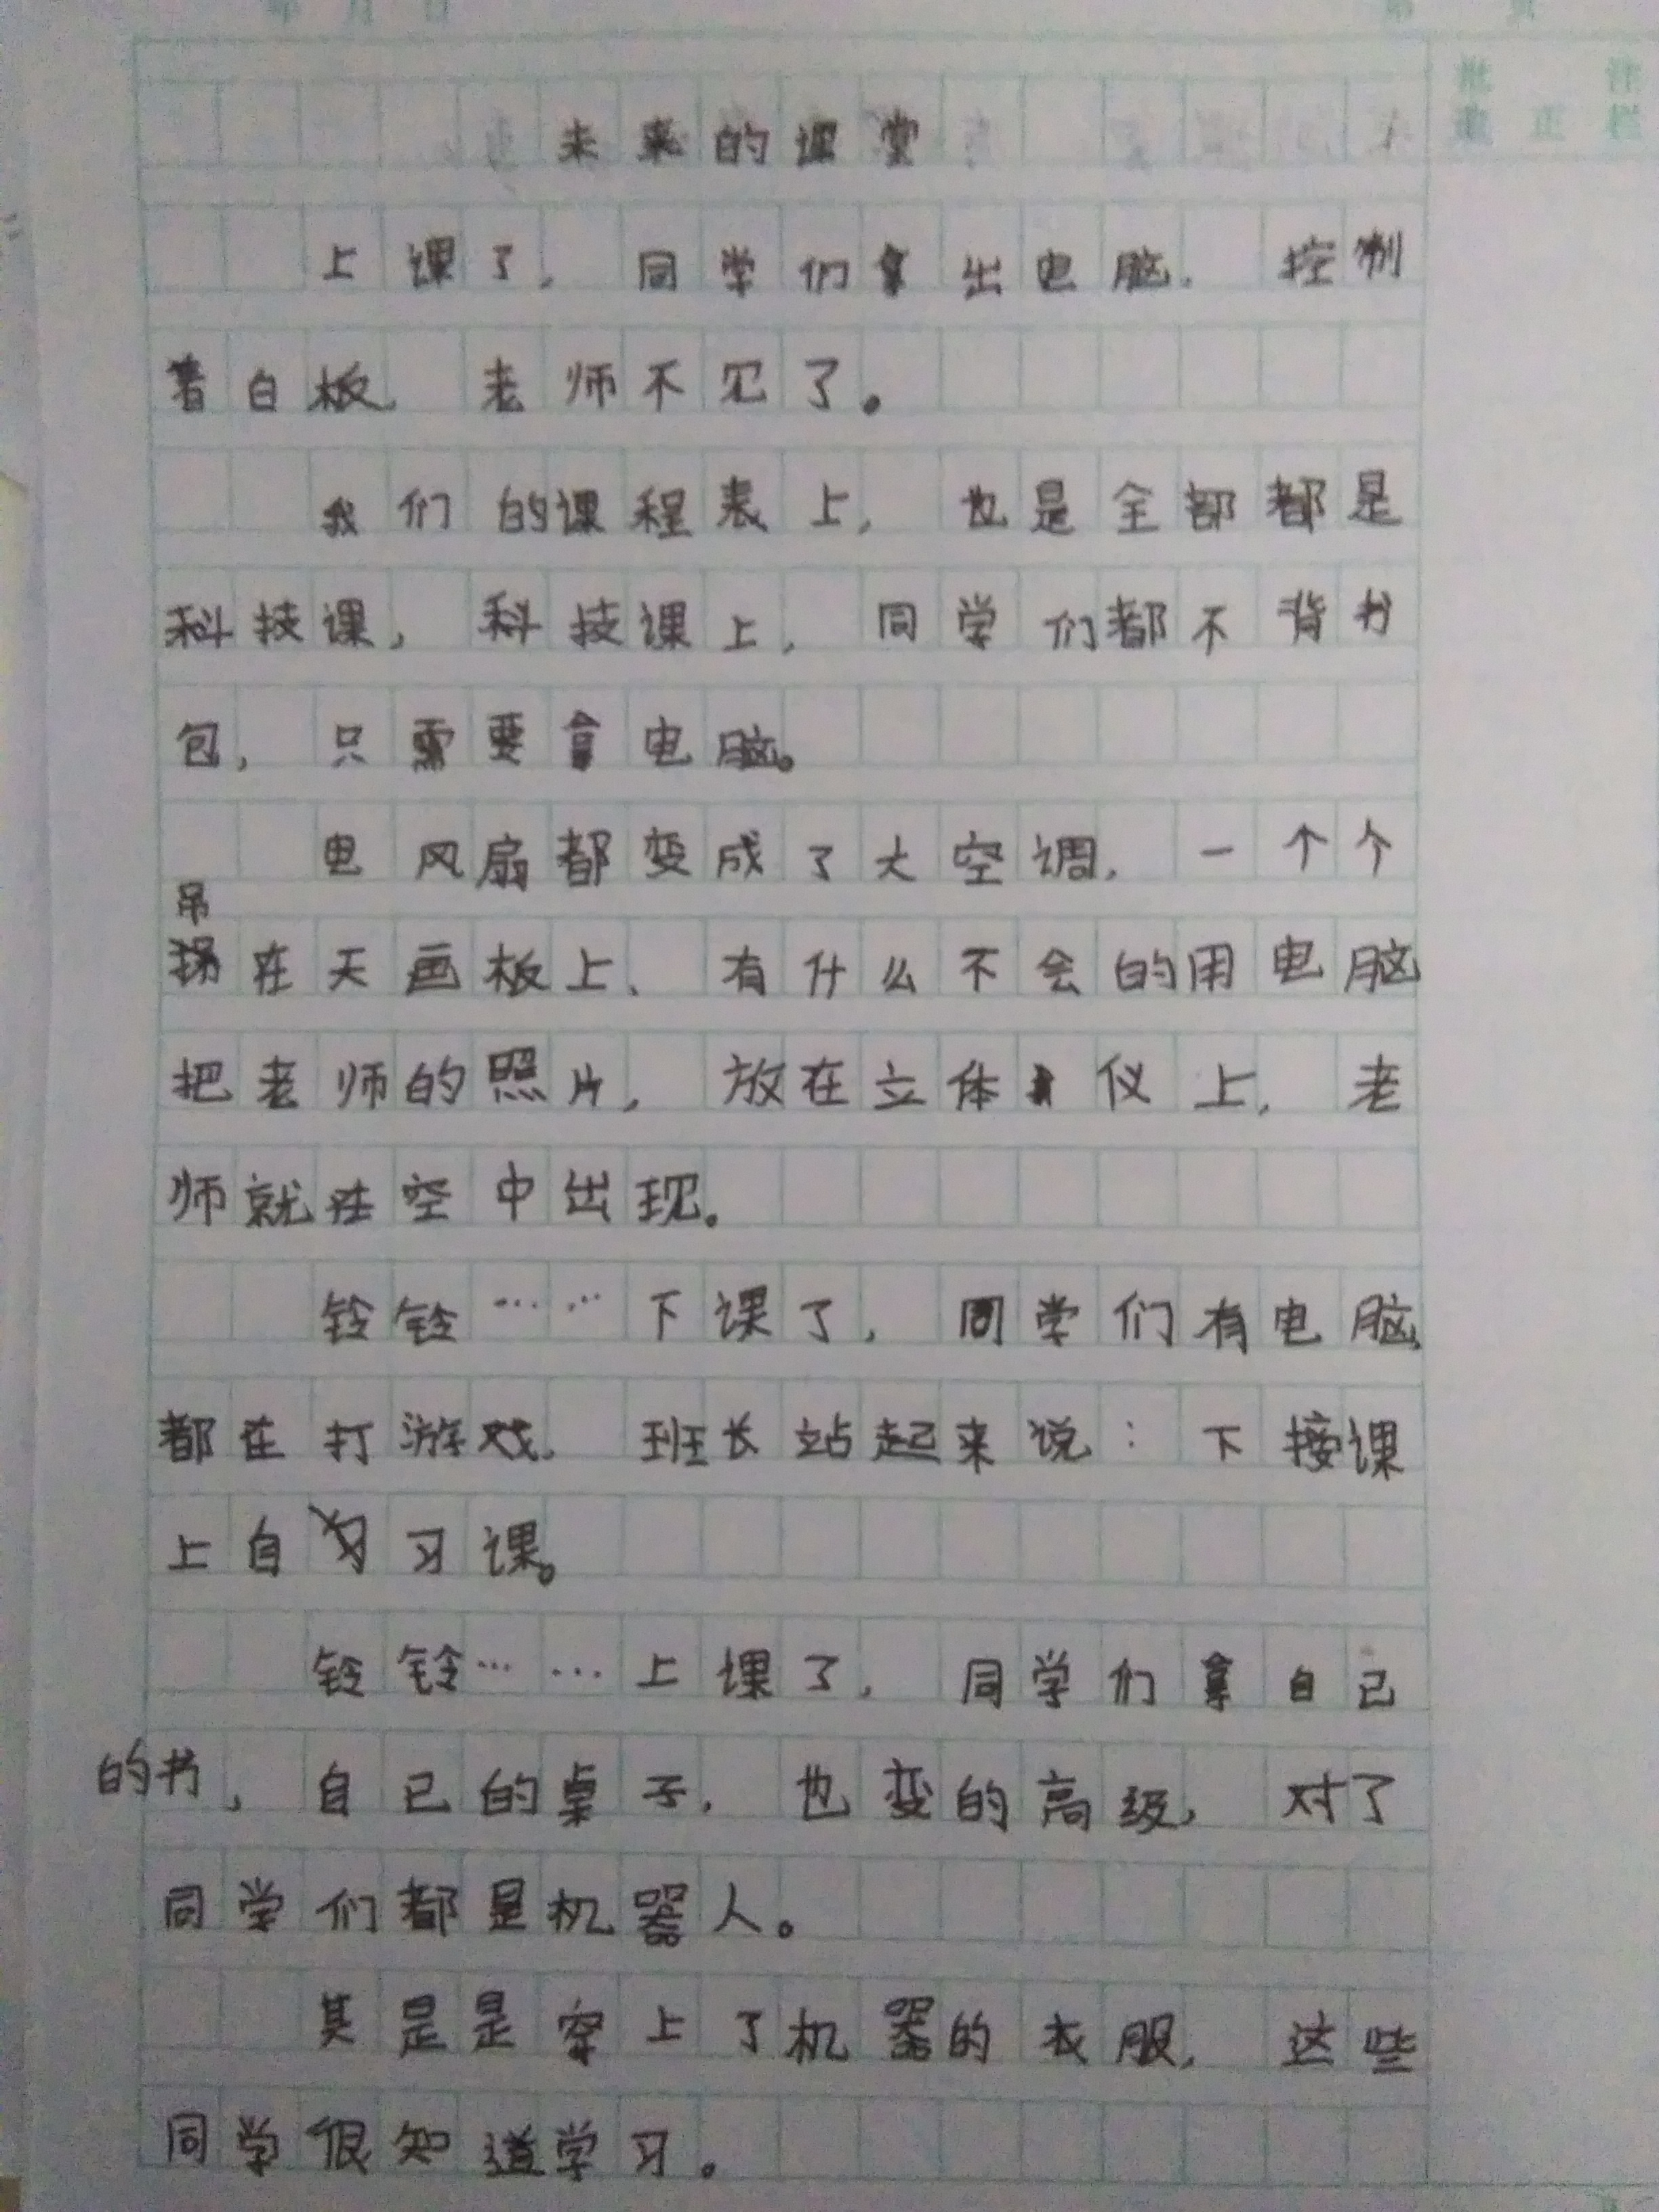 未来的课堂
上课了，同学们拿出电脑，控制
着白板，老师不见了。
我们的课程表上，也是全部都是
科技课，科技课上，同学们都不背书
包，只需要拿电脑。
电风扇都变成了大空调，一个个
吊
在天画板上、有什么不会的用电脑
把老师的照片，放在立体仪上，老
师就在空中出现。
铃铃……下课了，同学们有电脑，
都在打游戏，班长站起来说：下接课
上自习课。
铃铃……上课了，同学们拿自己
的书，自己的桌子，也变的高级，对了
同学们都是机器人。
其是是穿上了机器的衣服，这些
同学很知道学习。